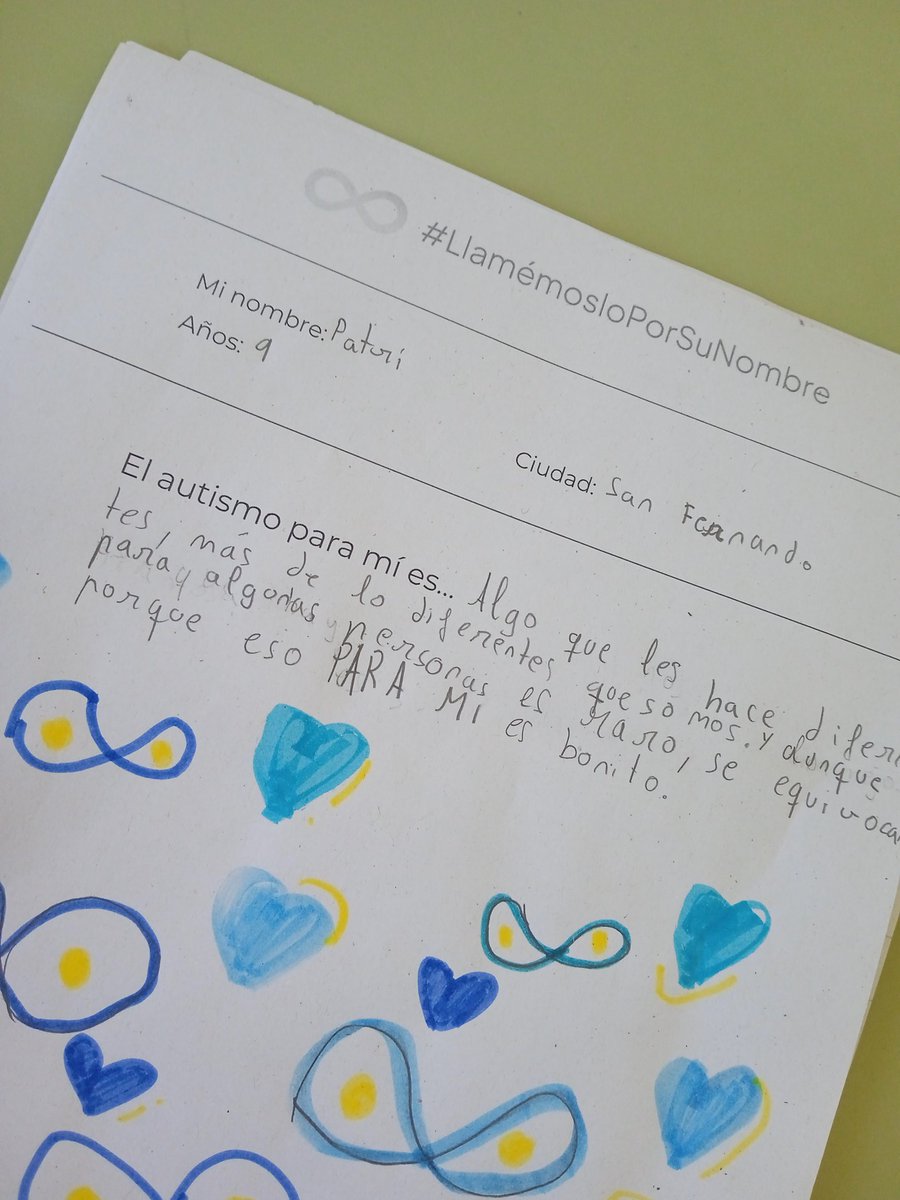 #LlamémosloPorSuNombre
Mi nombre: Paturi
Años: 9
Ciudad: San Fernando
El autismo para mí es... Algo que les hace diferen
tes, más de lo diferentes que somos. y aunque
para algunas personas es raro, se equivocan
porque eso PARA MÍ es bonito.